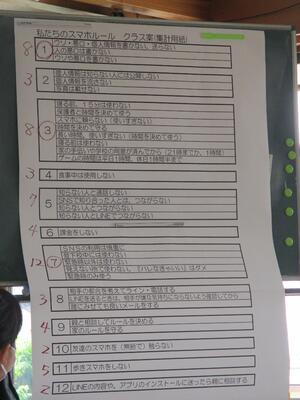 私たちのスマホルール　クラス案(集計用紙)
8 ① ウソ・悪口・個人情報を書かない、送らない
人の悪口は書かない
ウソや悪口を書かない
3 2 個人情報は知らない人には公開しない
個人情報を流さない
写真は載せない
8 ③ 寝る前、15分は使わない
保護者と時間を決めて使う
スマホに頼らない（使いすぎない）
時間を決めて守る
長い時間、使いすぎない（時間を決めて使う）
寝る前は使わない
家の手伝いや学校の用意が済んでから（21時までか、1時間）
ゲームの時間は平日1時間、休日1時間半まで
3 4 食事中は使用しない
7 5 知らない人と通話しない
SNSで知り合った人とは、つながらない
知らない人とつながらない
知らない人とLINEでつながらない
4 6 課金をしない
12 ⑦ SNSの利用は慎重に
登下校中には使わない
緊急時以外は使わない
見えない所で使わない。「ハレなきゃいい」はダメ
緊急時のみ使う
3 8 相手の都合を考えてライン・電話する
LINEを送るときは、相手が嫌な気持ちにならないよう確認してから
誰にみせても良いメールをする
4 9 親と相談してルールを決める
家のルールを守る
2 10 友達のスマホを（無断で）触らない
5 11 歩きスマホをしない
2 12 LINEの内容や、アプリのインストールに迷ったら親に相談する